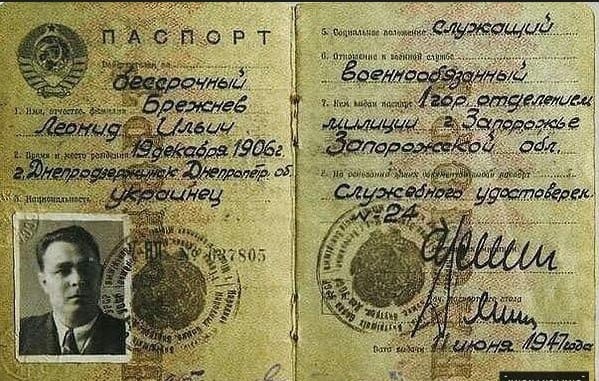 ПАСПОРТ
Действителен по
бессрочный
1. Имя, отчество, фамилия Брежнев
Леонид Ильич
2. Время и место рождения 19 декабря 1906г
г. Днепродзержинск Днепропетр. об.
3. Национальность украинец
№ 637805
5. Социальное положение служащий
6. Отношение к военной службе
Военнообязанный
7. Кем выдан паспорт 1 гор. отделением
милиции г. Запорожье
Запорожской обл.
8. На основании каких документов паспорт
Служебного удостоверен
№ 24
нач. паспортного стола
Дата выдачи 11 июня 1947 года